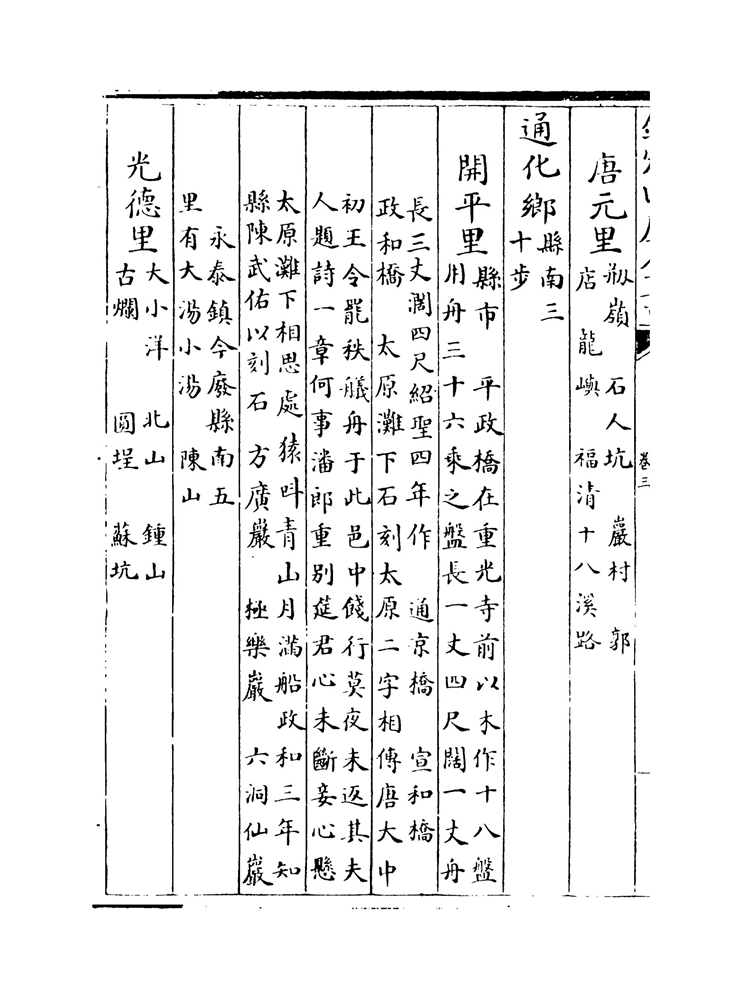 卷三
唐元里 瓶嶺 石人坑 巖村 郭
店 龍嶼 福清十八溪路
通化鄉 縣南三
十步
開平里 縣市 平政橋在重光寺前以木作十八盤
用舟三十六乘之盤長一丈四尺闊一丈舟
長三丈濶四尺紹聖四年作 通京橋 宣和橋
政和橋 太原灘下石刻太原二字相傳唐大中
初王令罷秩艤舟于此邑中餞行莫夜未返其夫
人題詩一章何事潘郎重别筵君心未斷妾心懸
太原灘下相思處猿呌青山月滿船政和三年知
縣陳武佑以刻石 方廣巖 極樂巖 六洞仙巖
永泰鎮今廢縣南五
里有大湯小湯 陳山
光德里 大小洋 北山 鍾山
古爛 圓埕 蘇坑